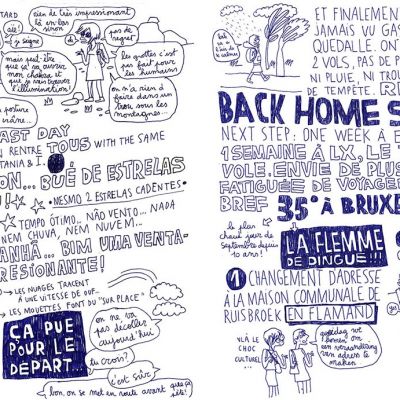 TARD
rien de très impressionnant
là en bas
sinon
aïe!
je saigne
pas de
regret
mais peut-être
que ça va ouvrir
mon chakra et
que je vais trouver
l'illumination!
les grottes c'est
pas fait pour
les humains
on n'a rien à
faire dans un
trou sous les
montagnes...
posture
crâne...
AST DAY
RENTRE TOUS WITH THE SAME
TANIA & I.
ON... BUÉ DE ESTRELAS
• NESMO 2 ESTRELAS CADENTES •
TEMPO ÓTIMO.. NÃO VENTO... NADA
NEM CHUVA, NEM NUVEM..
ANHÃ... BIM UMA VENTA-
RESIONANTE!
→ LES NUAGES TRACENT
À UNE VITESSE DE OUF...
→ LES MOUETTES FONT DU "SUR PLACE"
ÇA PUE
POUR LE
DÉPART...
on ne va
pas décoller
aujourd'hui
tu crois?
c'est sûr
bon, on se met en route avant que ça
pète!
ET FINALEMENT
JAMAIS VU
QUEDALLE. ON
2 VOLS, PAS DE
NI PLUIE, NI TROU
DE TEMPÊTE.
BACK HOME S
NEXT STEP: ONE WEEK À
1 SEMAINE À LX, LE
VOLE. ENVIE DE PLUS
FATIGUÉE DE VOYAGE
BREF 35° À BRUX
le plus
chaud jour de
septembre depuis
10 ans!
LA FLEMME
DE DINGUE!!!
1 CHANGEMENT D'ADRESSE
À LA MAISON COMMUNALE DE
RUISBROEK EN FLAMAND
V'LÀ LE
CHOC
CULTUREL...
goeiedag we
komen om
een verandering
van adres te
maken